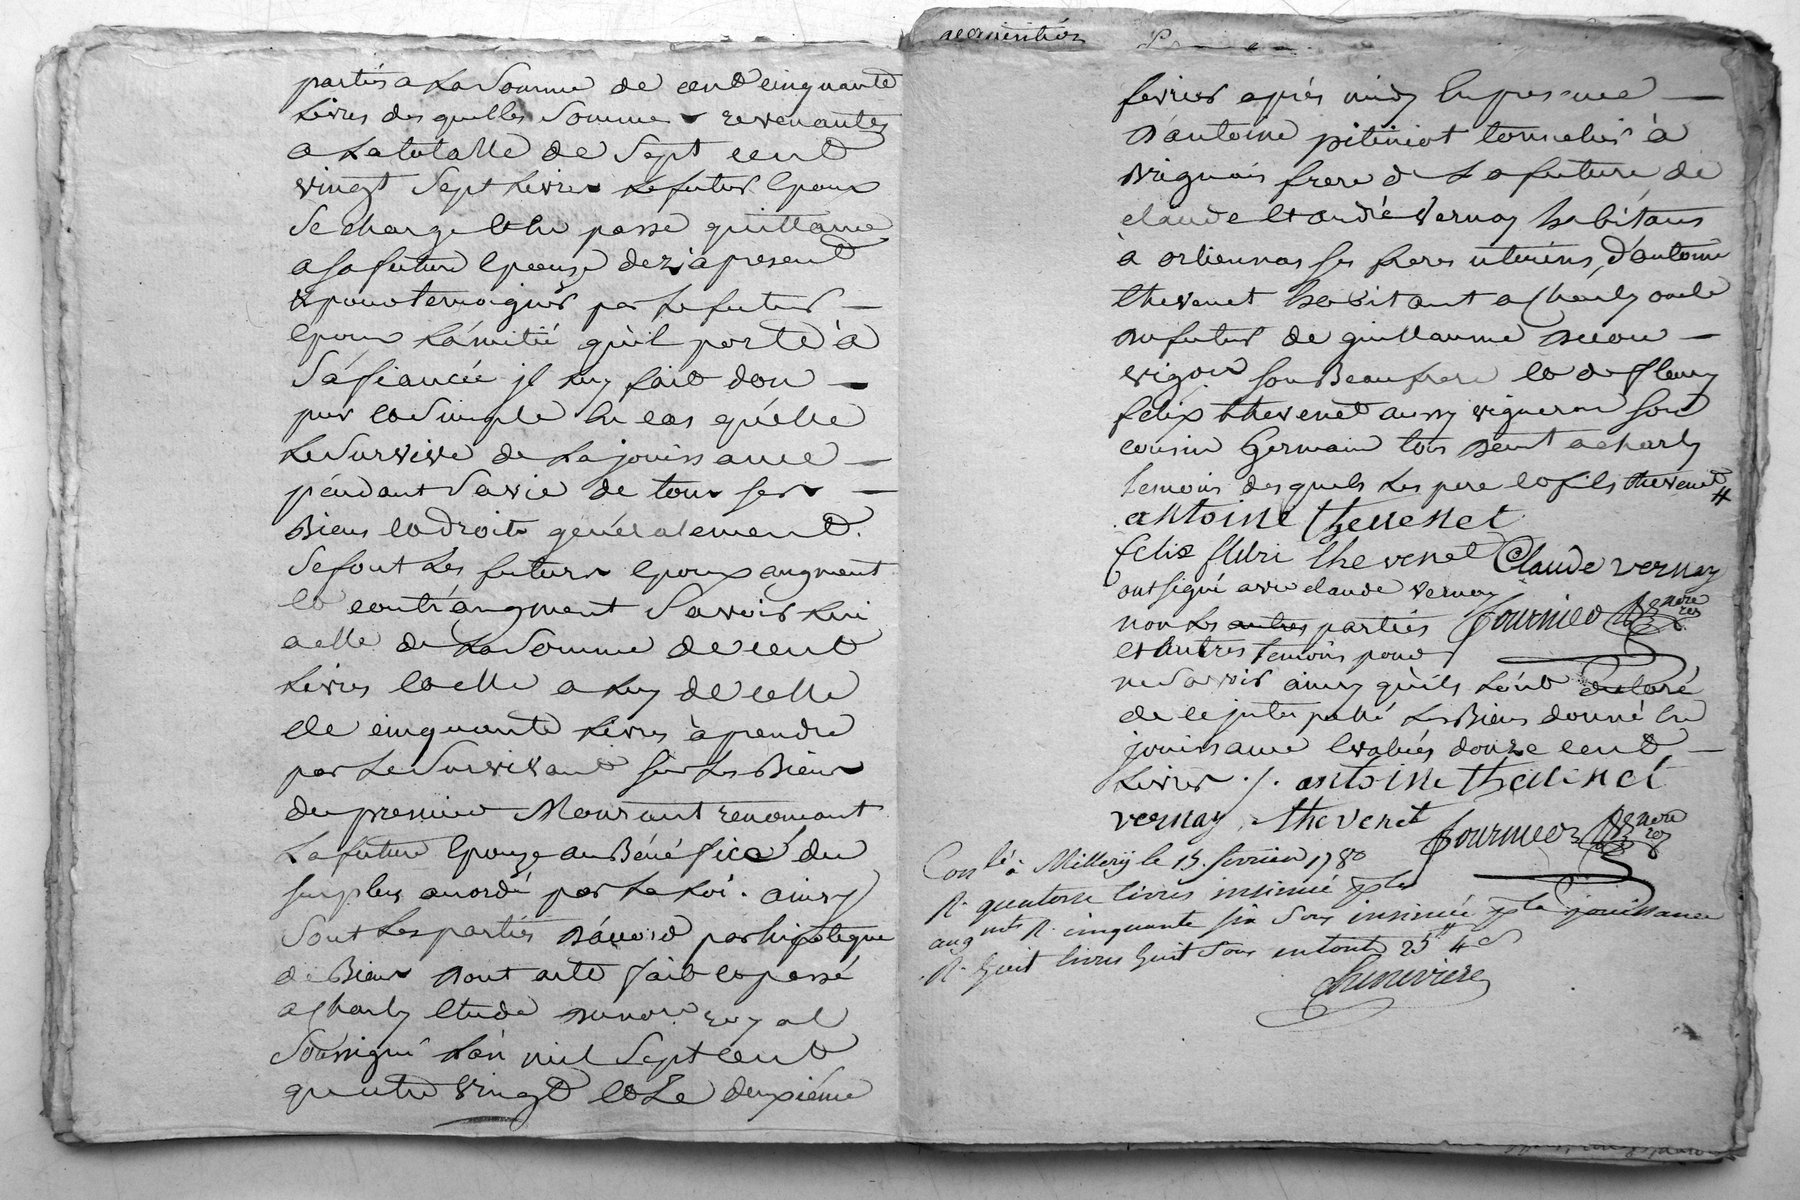 partiés a La Somme de cent cinquante
Livres des quelles Sommes revenantes
a La totalle de Sept cent
vingt Sept Livres Le futur Epoux
Se charge et en passe quittance
a Sa future Epouze dez japresent
& pour temoigner par Le futur —
Epoux L'ámitié qu'il porte à
Sa fiancée jl luy fait don —
pur et Simple En cas qu'elle
Le Survive de La jouissance —
péndant Sa vie de tous ses —
Biens et droits genéralement.
Se font Les futurs Epoux augment
et contr'augment Savoir Lui
a elle de La Somme de cent
Livres et elle a Luy de celle
de cinquante Livres à prendre
par Le Survivant sur Les Biens
du premier Mourant renoncant
La future Epouze au Bénéfice du
surplus accordé par La Loi. ainsy
Sont Les partiés D'accord par hipoteque
de Biens Dont acte fait et passé
a Charly Etude Du nore. royal
Soussigné L'an mil Sept cent
quatre vingt et Le deuxiéme
requisition
fevrier aprés midy En presence —
D'antoine pitiniot tonnelier à
Brignais frere de La future de
claude et andré vernay habitans
à orliennas ses freres uterins, d'antoine
thevenet habitant a Charly oncle
Du futur de guillaume —
vigier son Beaufrere et de fleury
felix thevenet aussy vigneron son
cousin Germain tous Deux a charly
temoins desquels Les pere et fils thevenet #
antoine thevenet
felix fleuri thevenet Claude vernay
ont signé avec claude vernay
non Les autres partiés fournier Nore rer
et Autres temoins pour
ne Savoir ainsy qu'ils L'ont declaré
de ce jnterpellé Les Biens donné En
jouissance Evalués douze cent —
Livres ./. antoine thevenet
vernay thevenet
fournier Nore rer
Conlé à Millery le 15. fevrier 1780
R. quatorse livres insinué ple
augmts R. cinquante six Sous insinuée ple jouissance
R. huit livres huit Sous en tout 25tt 4s
Chenevriere